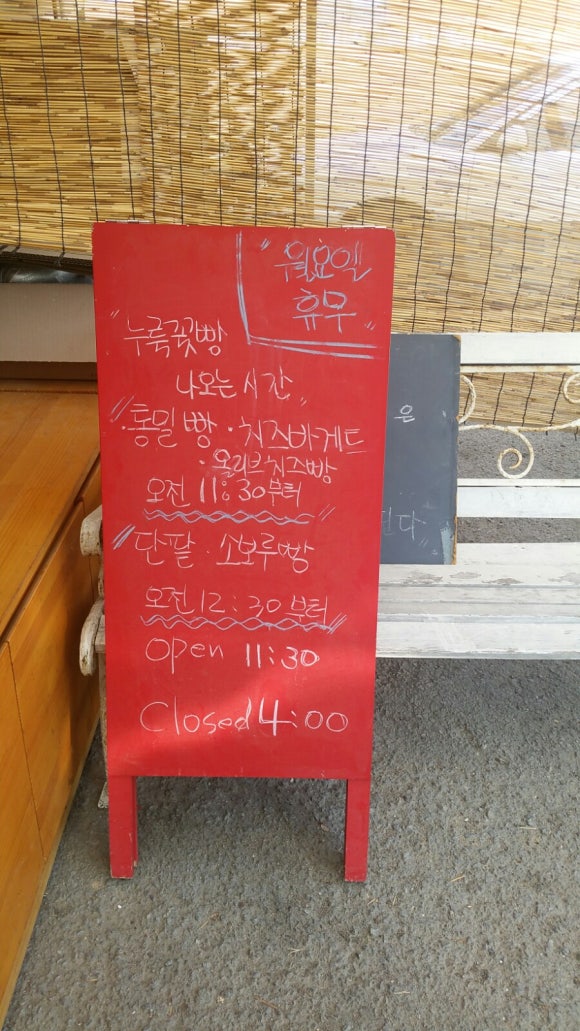 "월요일
휴무"
"누룩꽃빵
나오는 시간"
"·통밀빵 · 치즈바게트
· 올리브치즈빵
오전 11:30부터"
"단팥 · 소보루빵
오전 12:30부터"
Open 11:30
Closed 4:00
은
다"